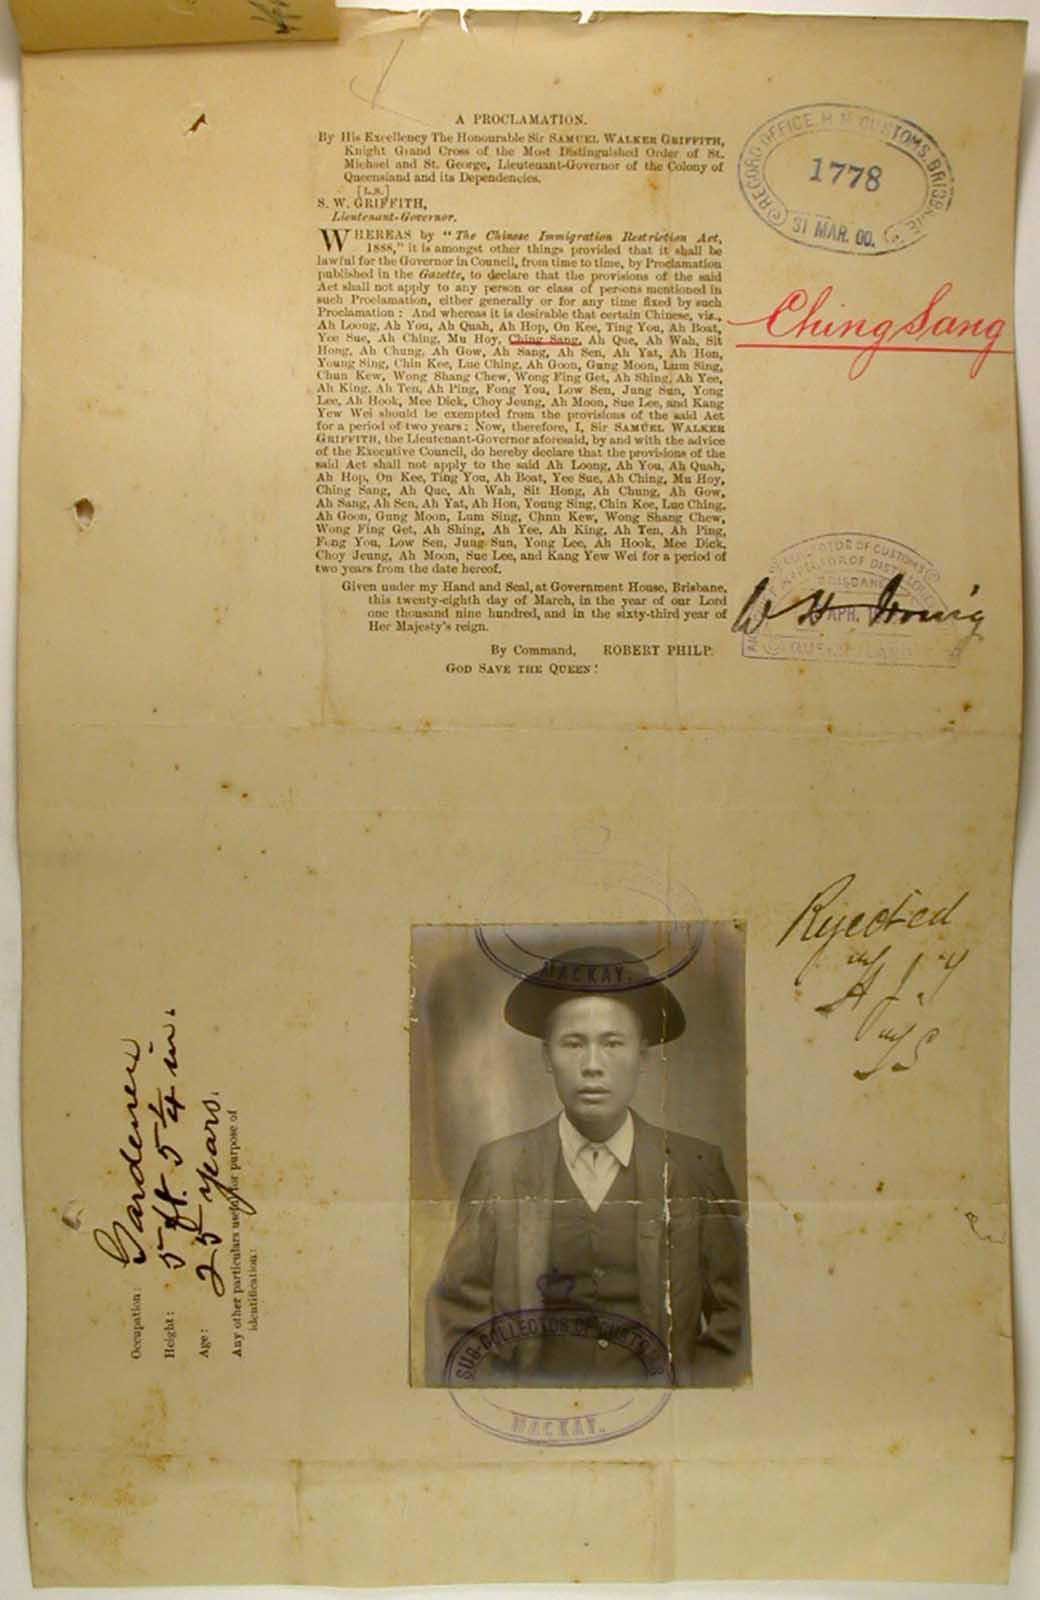 A PROCLAMATION.
By His Excellency The Honourable Sir SAMUEL WALKER GRIFFITH,
Knight Grand Cross of the Most Distinguished Order of St.
Michael and St. George, Lieutenant-Governor of the Colony of
Queensland and its Dependencies.
[L.S.]
S. W. GRIFFITH,
Lieutenant-Governor.
WHEREAS by "The Chinese Immigration Restriction Act,
1888," it is amongst other things provided that it shall be
lawful for the Governor in Council, from time to time, by Proclamation
published in the Gazette, to declare that the provisions of the said
Act shall not apply to any person or class of persons mentioned in
such Proclamation, either generally or for any time fixed by such
Proclamation: And whereas it is desirable that certain Chinese, viz.,
Ah Loong, Ah You, Ah Quah, Ah Hop, On Kee, Ting You, Ah Boat,
Yee Sue, Ah Ching, Mu Hoy, Ching Sang, Ah Que, Ah Wah, Sit
Hong, Ah Chung, Ah Gow, Ah Sang, Ah Sen, Ah Yat, Ah Hon,
Young Sing, Chin Kee, Lue Ching, Ah Goon, Gung Moon, Lum Sing,
Chun Kew, Wong Shang Chew, Wong Fing Get, Ah Shing, Ah Yee,
Ah King, Ah Ten, Ah Ping, Fong You, Low Sen, Jung Sun, Yong
Lee, Ah Hook, Mee Dick, Choy Jeung, Ah Moon, Sue Lee, and Kang
Yew Wei should be exempted from the provisions of the said Act
for a period of two years: Now, therefore, I, Sir SAMUEL WALKER
GRIFFITH, the Lieutenant-Governor aforesaid, by and with the advice
of the Executive Council, do hereby declare that the provisions of the
said Act shall not apply to the said Ah Loong, Ah You, Ah Quah,
Ah Hop, On Kee, Ting You, Ah Boat, Yee Sue, Ah Ching, Mu Hoy,
Ching Sang, Ah Que, Ah Wah, Sit Hong, Ah Chung, Ah Gow,
Ah Sang, Ah Sen, Ah Yat, Ah Hon, Young Sing, Chin Kee, Lue Ching,
Ah Goon, Gung Moon, Lum Sing, Chun Kew, Wong Shang Chew,
Wong Fing Get, Ah Shing, Ah Yee, Ah King, Ah Ten, Ah Ping,
Fong You, Low Sen, Jung Sun, Yong Lee, Ah Hook, Mee Dick,
Choy Jeung, Ah Moon, Sue Lee, and Kang Yew Wei for a period of
two years from the date hereof.
Given under my Hand and Seal, at Government House, Brisbane,
this twenty-eighth day of March, in the year of our Lord
one thousand nine hundred, and in the sixty-third year of
Her Majesty's reign.
By Command, ROBERT PHILP.
GOD SAVE THE QUEEN!
RECORD OFFICE H.M. CUSTOMS, BRISBANE
1778
31 MAR. 00.
Ching Sang
COLLECTOR OF CUSTOMS
INSPECTOR OF DISTILLERIES
BRISBANE
APR.
QUEENSLAND
W H Irving
Rejected
MACKAY.
SUB-COLLECTOR OF CUSTOMS
MACKAY.
Occupation: Gardener
Height: 5 ft. 5 1/4 in.
Age: 25 years.
Any other particulars useful for purpose of
identification: